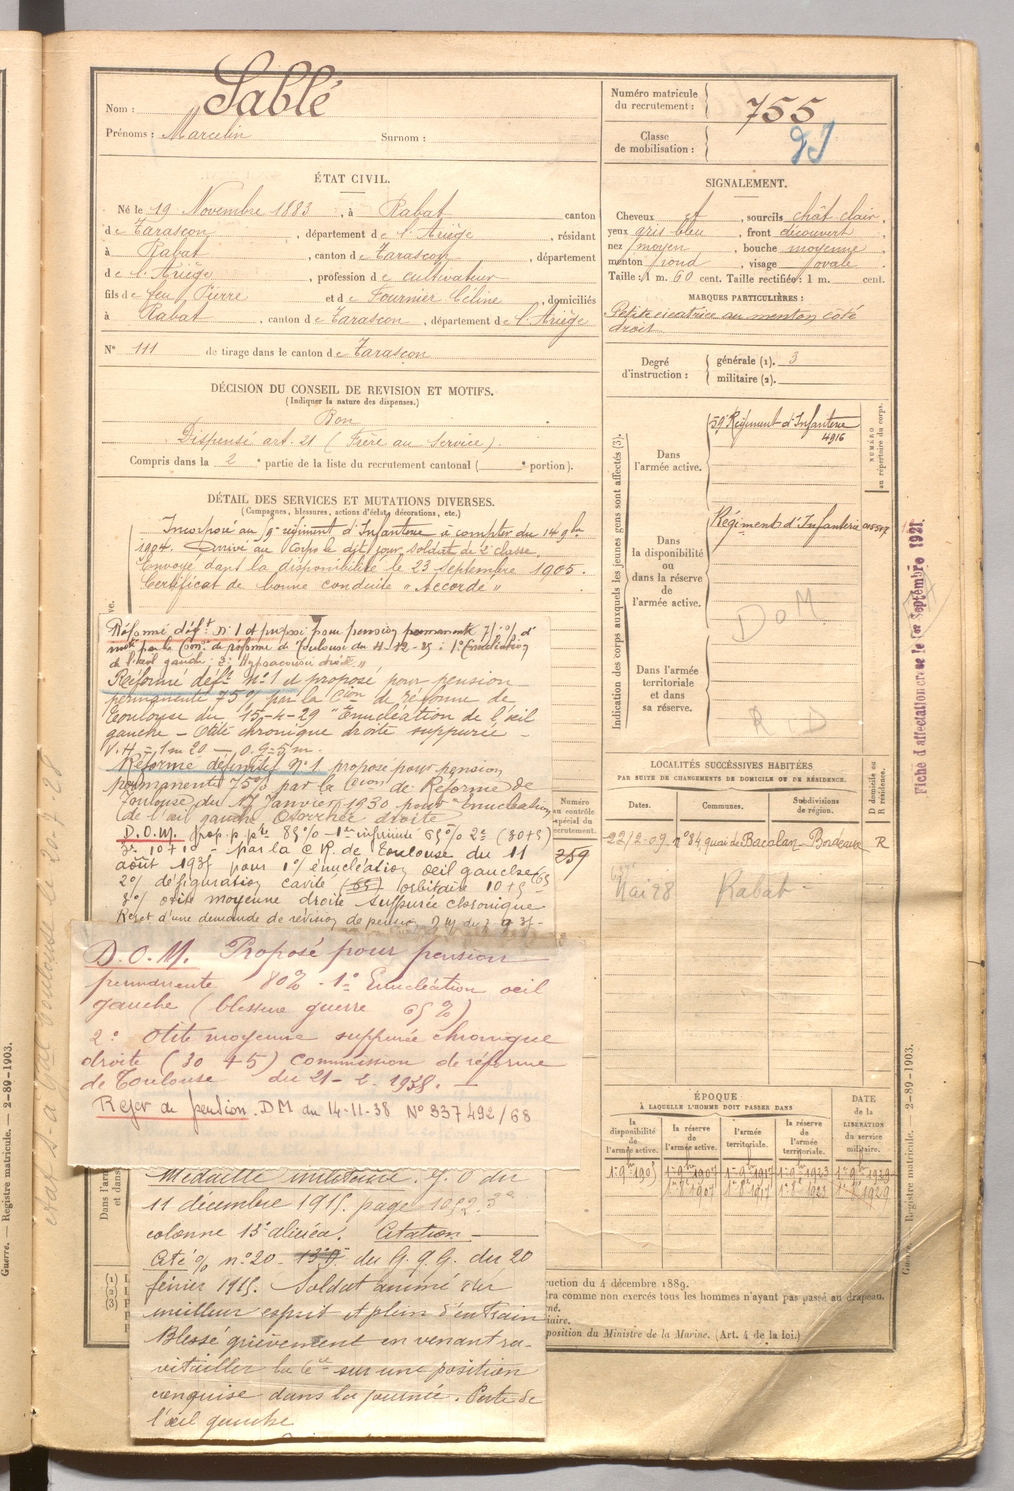 Nom : Sablé
Prénoms : Marcelin Surnom :
Numéro matricule du recrutement : 755
Classe de mobilisation :
ÉTAT CIVIL.
Né le 19 Novembre 1883, à Rabat canton
de Tarascon, département de l'Ariège, résidant
à Rabat, canton de Tarascon, département
de l'Ariège, profession de cultivateur
fils de feu Pierre et de Fournier Céline, domiciliés
à Rabat, canton de Tarascon, département de l'Ariège
N° 111 de tirage dans le canton de Tarascon
DÉCISION DU CONSEIL DE REVISION ET MOTIFS.
(Indiquer la nature des dispenses.)
Bon
Dispensé art. 21 (Frère au Service).
Compris dans la 2e partie de la liste du recrutement cantonal ( e portion).
DÉTAIL DES SERVICES ET MUTATIONS DIVERSES.
(Campagnes, blessures, actions d'éclat, décorations, etc.)
Incorporé au 59e régiment d'Infanterie à compter du 14 9bre
1904. Arrivé au Corps le dit jour, Soldat de 2e classe.
Envoyé dans la disponibilité le 23 Septembre 1905.
Certificat de bonne conduite "Accordé"
Réformé déf.t N°1 et proposé pour pension permanente
de l'œil gauche; 2° Hypoacousie droite"
Réformé déf. N°1 et proposé pour pension
permanente 75% par la Cion de réforme de
Toulouse du 15-4-29 "Enucléation de l'œil
gauche - Otite chronique droite suppurée -
V.H = 1m20 — O.G = 5m.
Réforme définitive N°1 proposé pour pension
permanente 75% par la Cion de Réforme de
Toulouse du Janvier 1930 pour "Enucléation
de l'œil gauche Otorrhée droite
D.O.M. prop. p. pte 85% - 1re infirmité 65% 2e (80+5)
3e 10+10 - par la C.R. de Toulouse du 11
août 1935 pour 1° énucléation œil gauche 65
2° défiguration cavité (65) orbitaire 10+5
3° otite moyenne droite suppurée chronique
Rejet d'une demande de révision de pension
D.O.M. Proposé pour pension
permanente 80% - 1° Enucléation oeil
gauche (blessure guerre 65%)
2° Otite moyenne suppurée chronique
droite (30+5) Commission de réforme
de Toulouse du 21-2-1938. —
Rejet de pension. DM du 14-11-38 N° 837492/68
Médaille militaire. J.O du
11 décembre 1915. page
colonne 13e alinéa. Citation —
Cité % n°20 du G.Q.G. du 20
février 1915. Soldat animé du
meilleur esprit et plein d'entrain
Blessé grièvement en venant ra-
vitailler la Cie sur une position
conquise dans la journée. Perte de
l'œil gauche
SIGNALEMENT.
Cheveux et, sourcils chât clair,
yeux gris bleu, front découvert,
nez moyen, bouche moyenne
menton rond, visage ovale.
Taille : 1 m. 60 cent. Taille rectifiée : 1 m. cent.
MARQUES PARTICULIÈRES :
Petite cicatrice au menton côté
droit
Degré d'instruction : générale (1). 3
militaire (2).
Indication des corps auxquels les jeunes gens sont affectés (3).
NUMÉRO au répertoire du corps.
Dans l'armée active. 59e Régiment d'Infanterie
4916
Dans la disponibilité ou dans la réserve de l'armée active. Régiment d'Infanterie
D o M
Dans l'armée territoriale et dans sa réserve.
R D
Fiche d'affectation créée le 1er Septembre 1921.
LOCALITÉS SUCCESSIVES HABITÉES
PAR SUITE DE CHANGEMENTS DE DOMICILE OU DE RÉSIDENCE.
Dates. Communes. Subdivisions de région. D domicile ou R résidence.
22/2-09 n°84 quai de Bacalan - Bordeaux R
Mai 28 Rabat -
Numéro au contrôle spécial du recrutement.
259
ÉPOQUE
À LAQUELLE L'HOMME DOIT PASSER DANS
DATE de la LIBÉRATION du service militaire.
la disponibilité de l'armée active. la réserve de l'armée active. l'armée territoriale. la réserve de l'armée territoriale.
Dans l'arm
et dans
(1)
(2)
(3)
ruction du 4 décembre 1889.
tra comme non exercés tous les hommes n'ayant pas passé au drapeau.
position du Ministre de la Marine. (Art. 4 de la loi.)
Guerre. — Registre matricule. — 2-89-1903.
Registre matricule. — 2-89-1903.